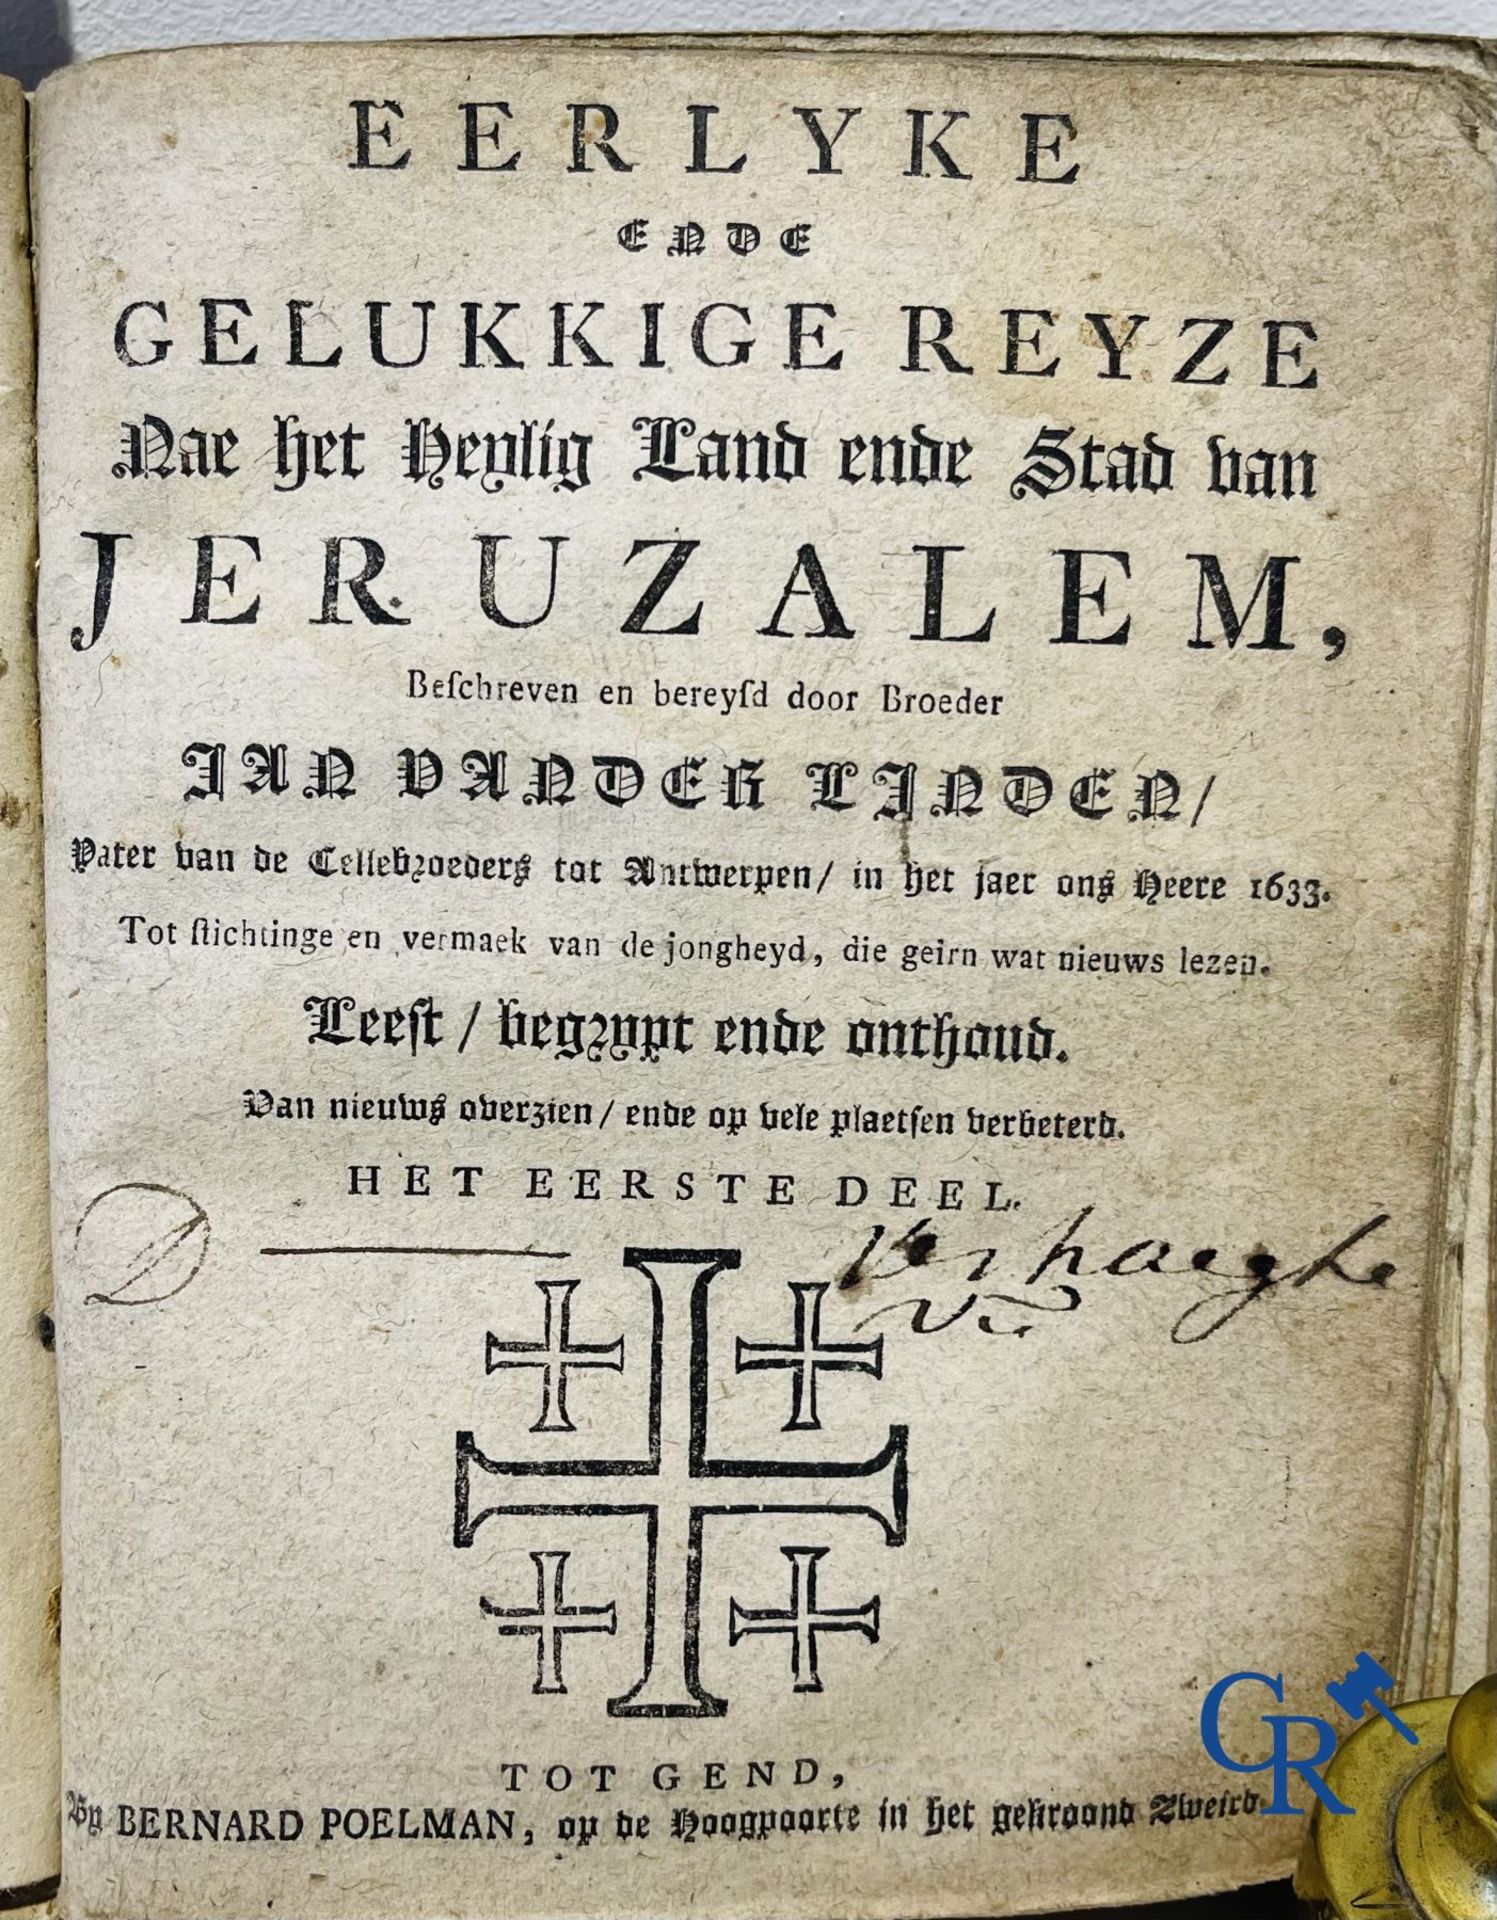 EERLYKE
ENDE
GELUKKIGE REYZE
Nae het Heylig Land ende Stad van
JERUZALEM,
Beſchreven en bereyſd door Broeder
JAN VANDER LINDEN/
Pater van de Cellebroeders tot Antwerpen/ in het jaer ons Heere 1633.
Tot ſtichtinge en vermaek van de jongheyd, die geirn wat nieuws lezen.
Leeſt / begrypt ende onthoud.
Van nieuws overzien/ ende op vele plaetſen verbeterd.
HET EERSTE DEEL.
D Verhaeghe
TOT GEND,
By BERNARD POELMAN, op de Hoogpoorte in het gekroond Zweird.
GR